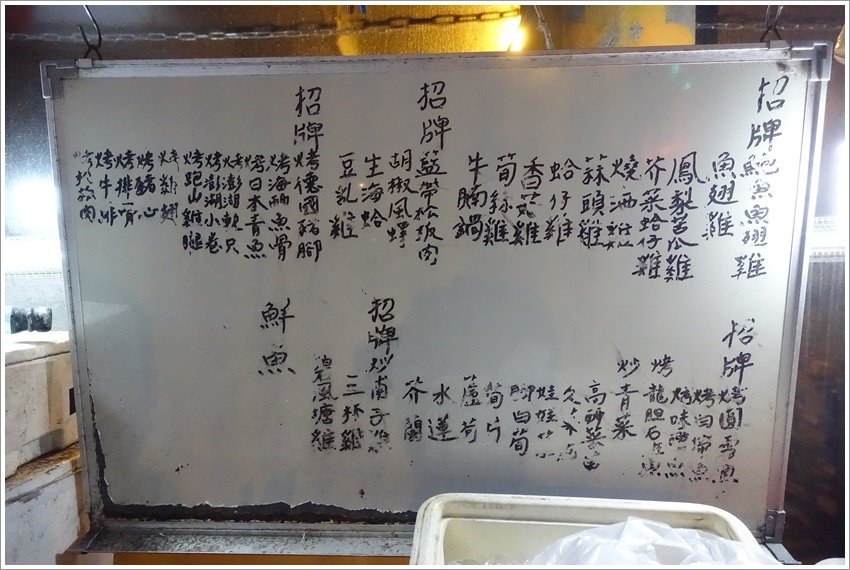 招牌鮑魚魚翅雞
魚翅雞
鳳梨苦瓜雞
芥菜蛤仔雞
燒酒雞
蒜頭雞
蛤仔雞
香菇雞
筍絲雞
牛腩鍋
招牌籃帶松板肉
胡椒風螺
生海蛤
豆乳雞
招牌烤德國豬腳
烤海鮞魚骨
烤日本青魚
烤澎湖軟只
烤澎湖小卷
烤跑山雞腿
烤雞翅
烤豬心
烤排骨
烤牛排
招牌烤圓雪魚
烤肉帶魚
烤味噌魚
烤龍胆石斑魚
炒青菜
高麗菜
娃娃菜
腳白筍
筍片
蘆筍
水蓮
芥蘭
招牌炒
三杯雞
避風塘雞
鮮魚